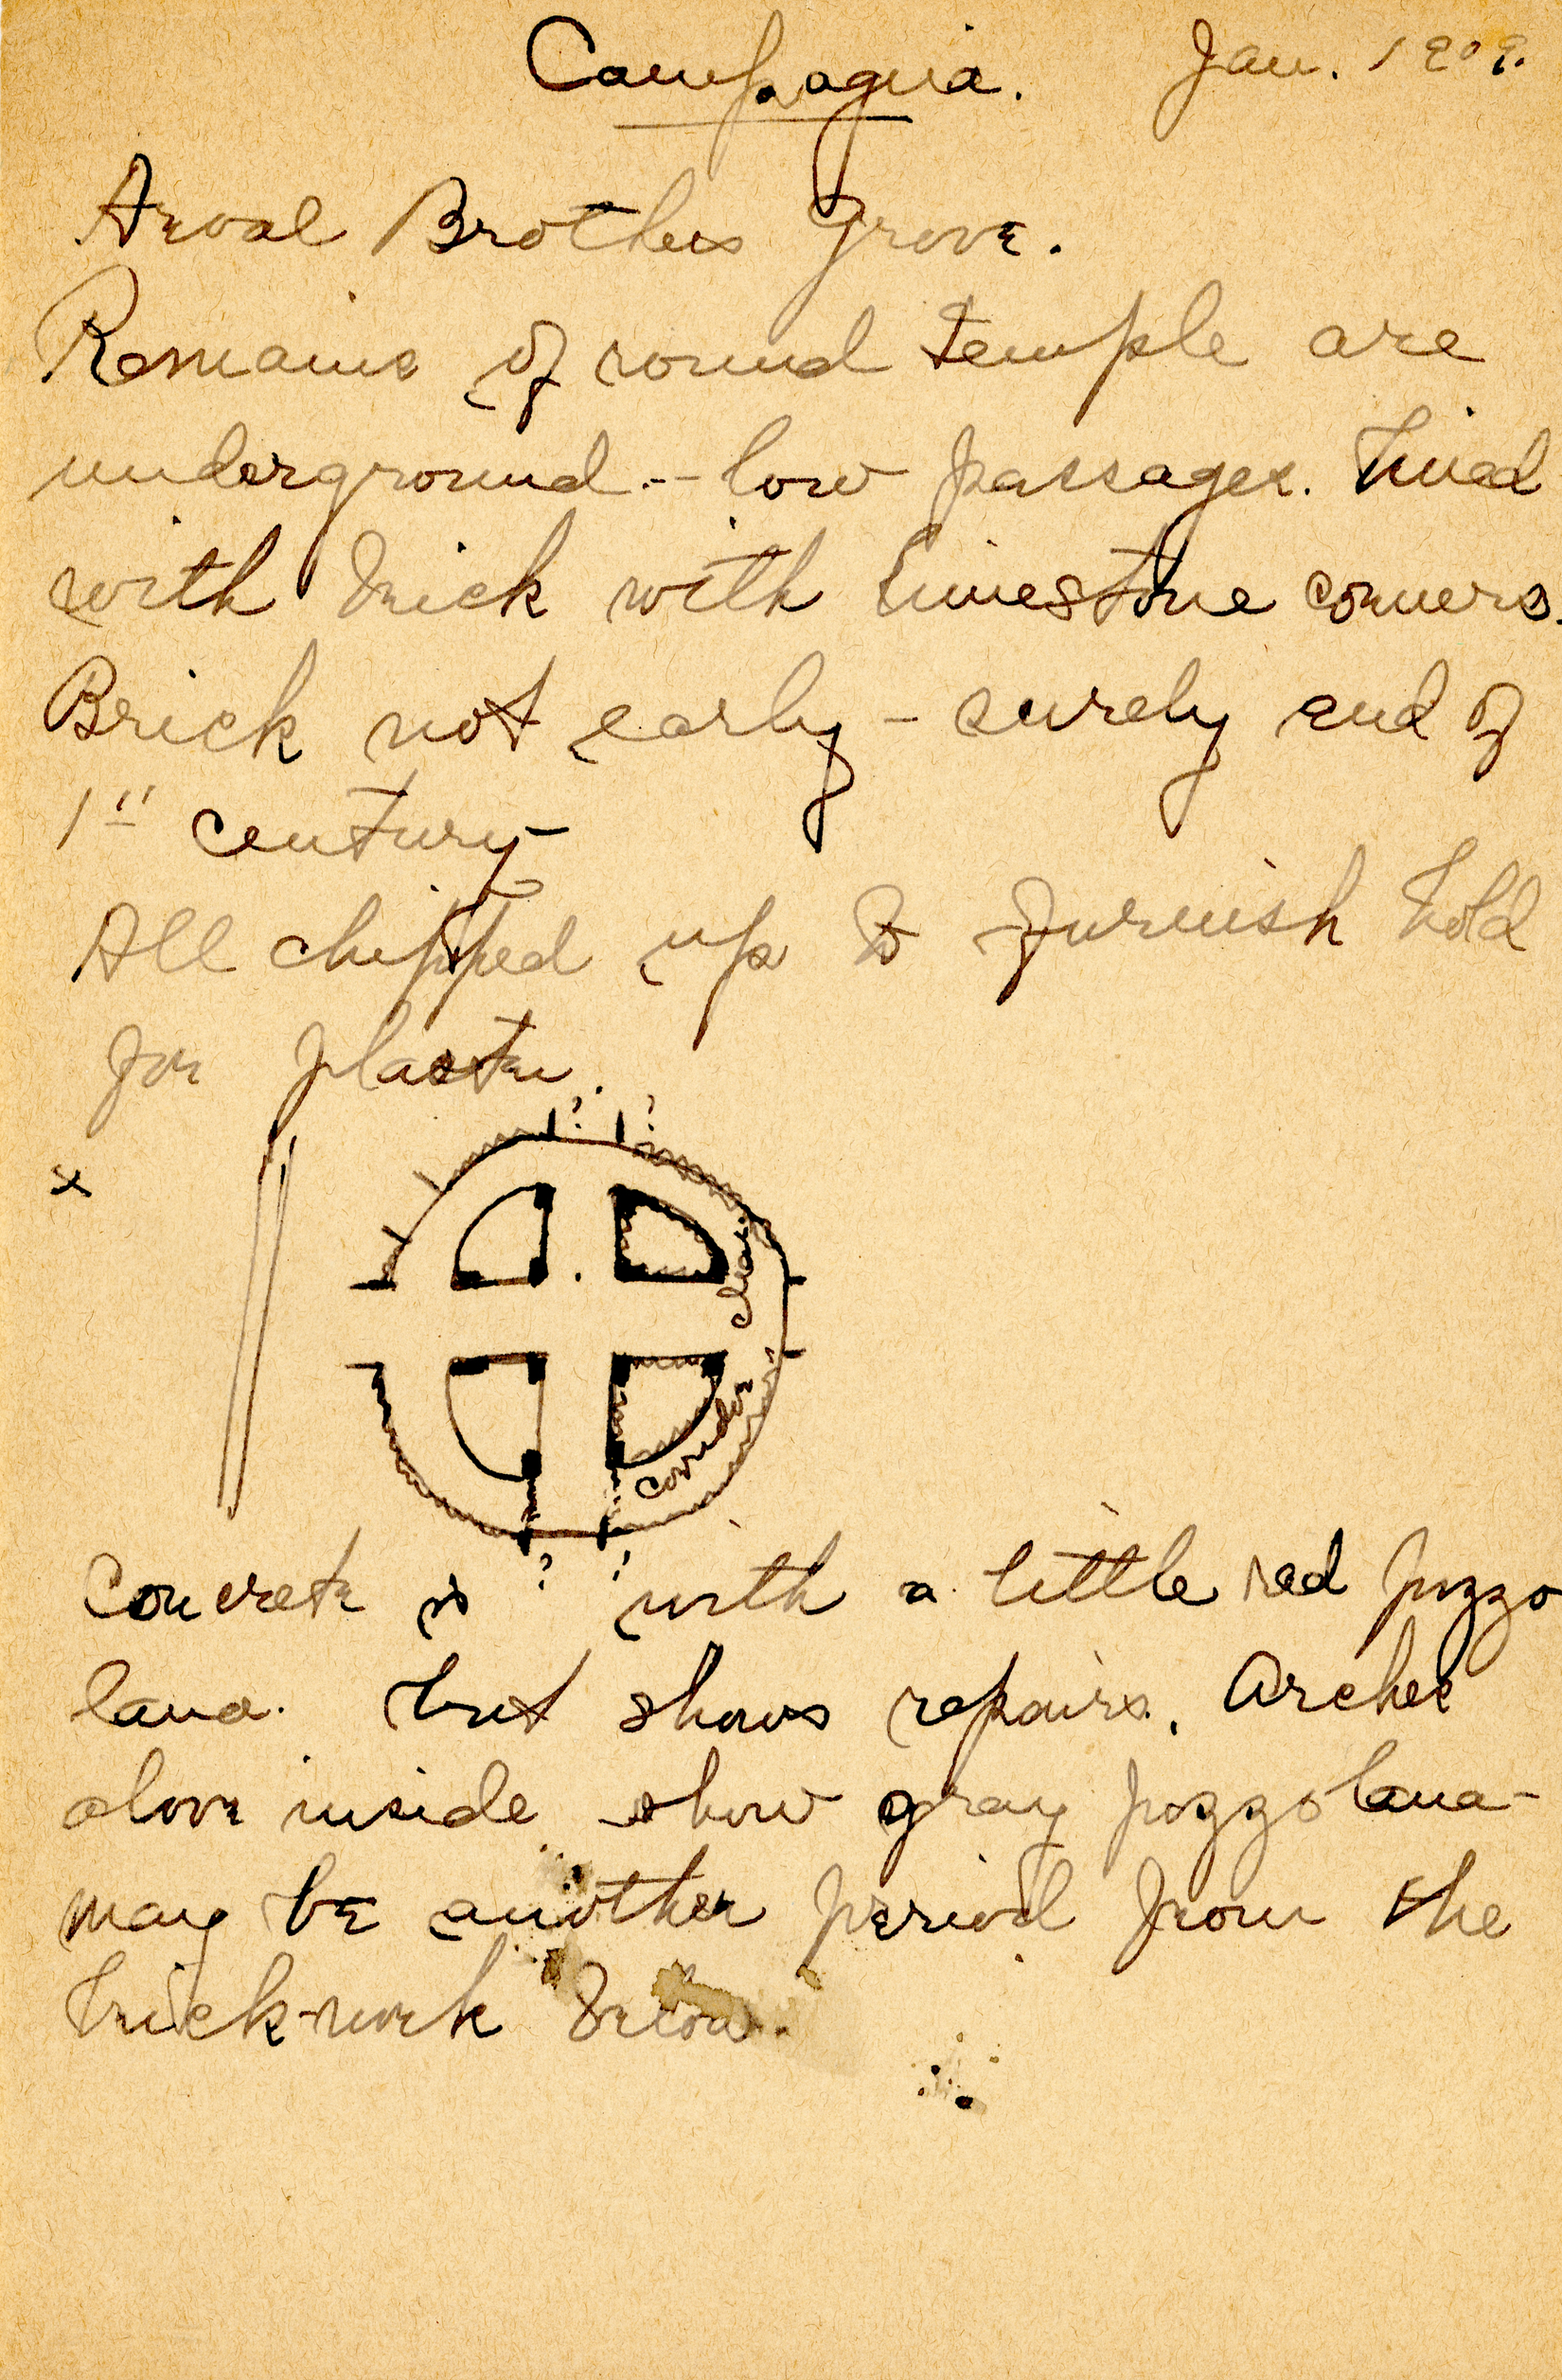 Campagna. Jan. 1909.
Arval Brothers Grove.
Remains of round temple are
underground -- low passages. Lined
with brick with limestone corners.
Brick not early - surely end of
1st century
All chipped up to furnish hold
for plaster.
? ?
x
clear
corridor
? ?
Concrete is with a little red pozzo
lana. but shows repairs. Arches
above inside show gray pozzolana -
may be another period from the
brick-work below.